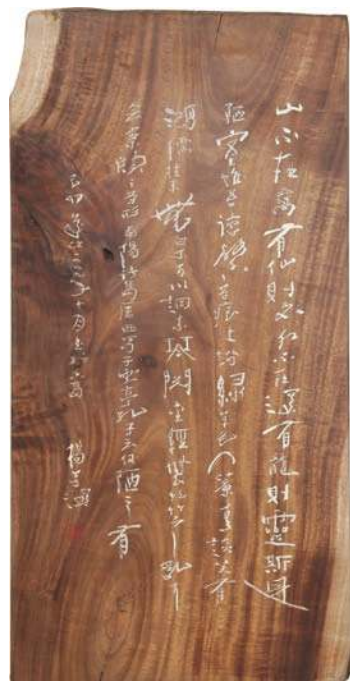 山不在高有仙則名水不在深有龍則靈斯是
陋室惟吾德馨苔痕上階綠草色入簾青談笑有
鴻儒往來無白丁可以調素琴閱金經無絲竹之乱耳
無案牘之勞形南陽諸葛廬西蜀子雲亭孔子云何陋之有
楊